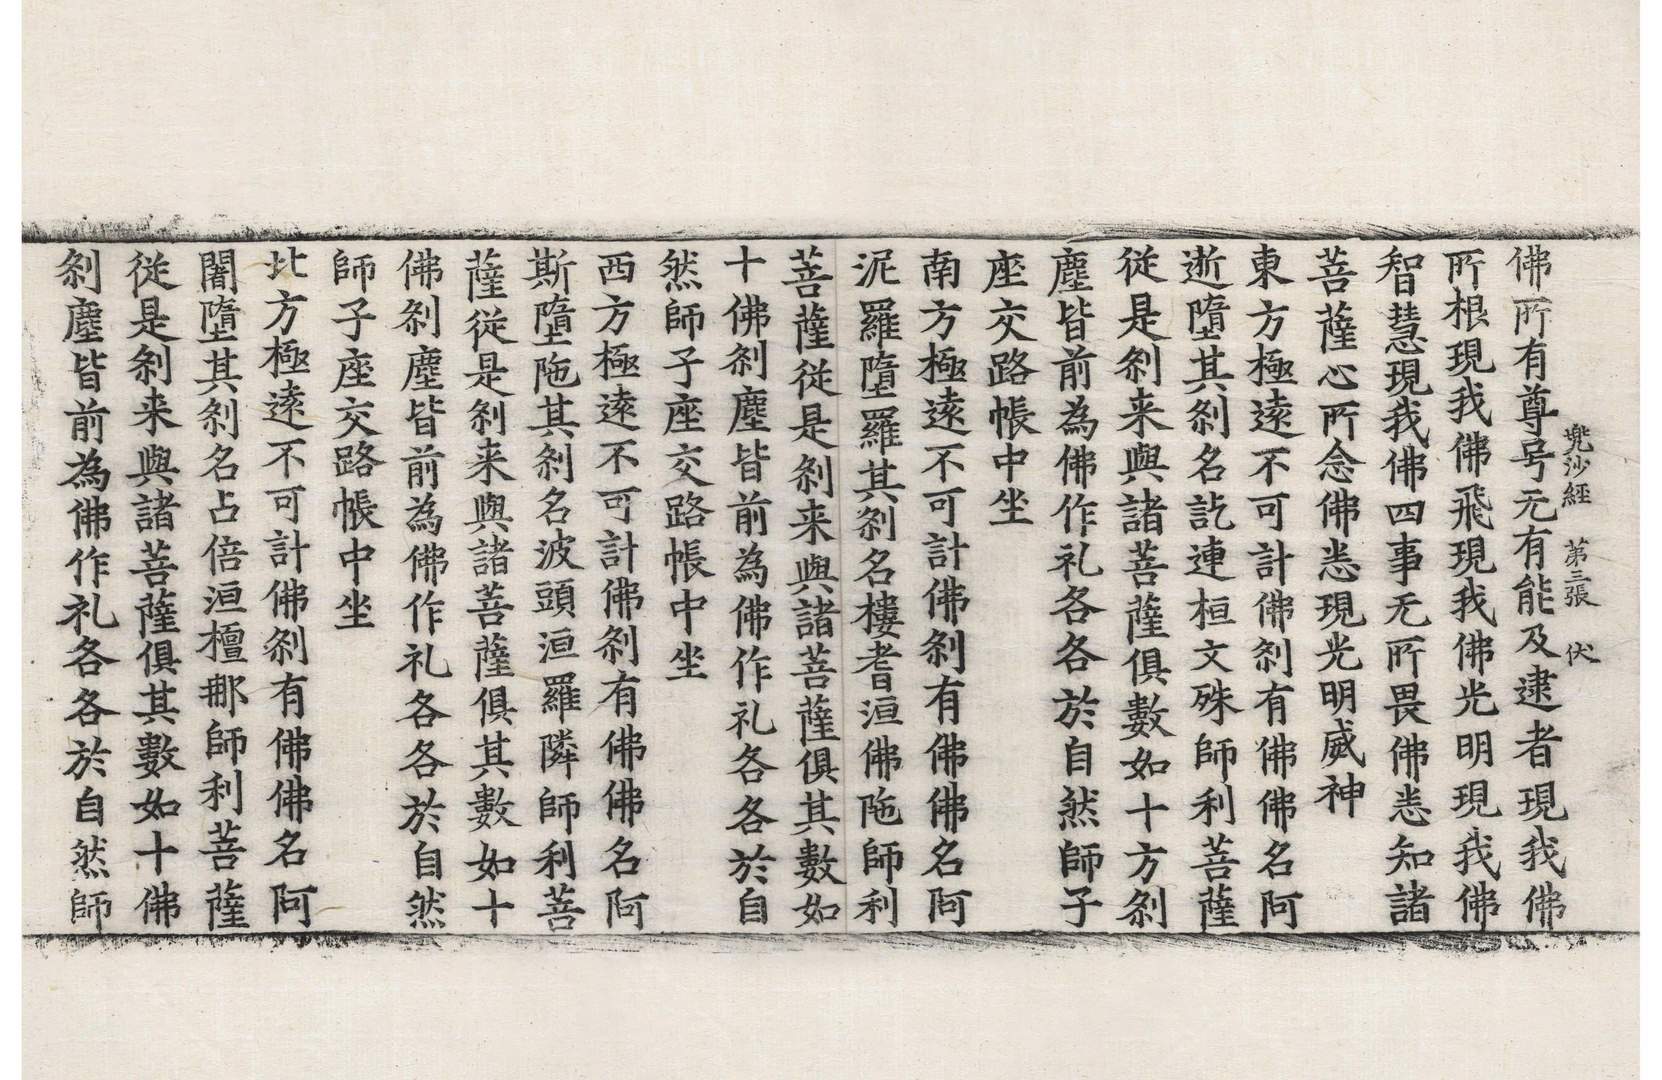 兜沙經　第三張　伏
佛所有尊号无有能及逮者現我佛
所根現我佛飛現我佛光明現我佛
智慧現我佛四事无所畏佛悉知諸
菩薩心所念佛悉現光明威神
東方極遠不可計佛剎有佛佛名阿
逝墮其剎名訖連桓文殊師利菩薩
從是剎来與諸菩薩俱數如十方剎
塵皆前為佛作礼各各於自然師子
座交路帳中坐
南方極遠不可計佛剎有佛佛名阿
泥羅墮羅其剎名樓耆洹佛陁師利
菩薩從是剎来與諸菩薩俱其數如
十佛剎塵皆前為佛作礼各各於自
然師子座交路帳中坐
西方極遠不可計佛剎有佛佛名阿
斯墮陁其剎名波頭洹羅隣師利菩
薩從是剎来與諸菩薩俱其數如十
佛剎塵皆前為佛作礼各各於自然
師子座交路帳中坐
北方極遠不可計佛剎有佛佛名阿
闍墮其剎名占倍洹檀那師利菩薩
從是剎来與諸菩薩俱其數如十佛
剎塵皆前為佛作礼各各於自然師